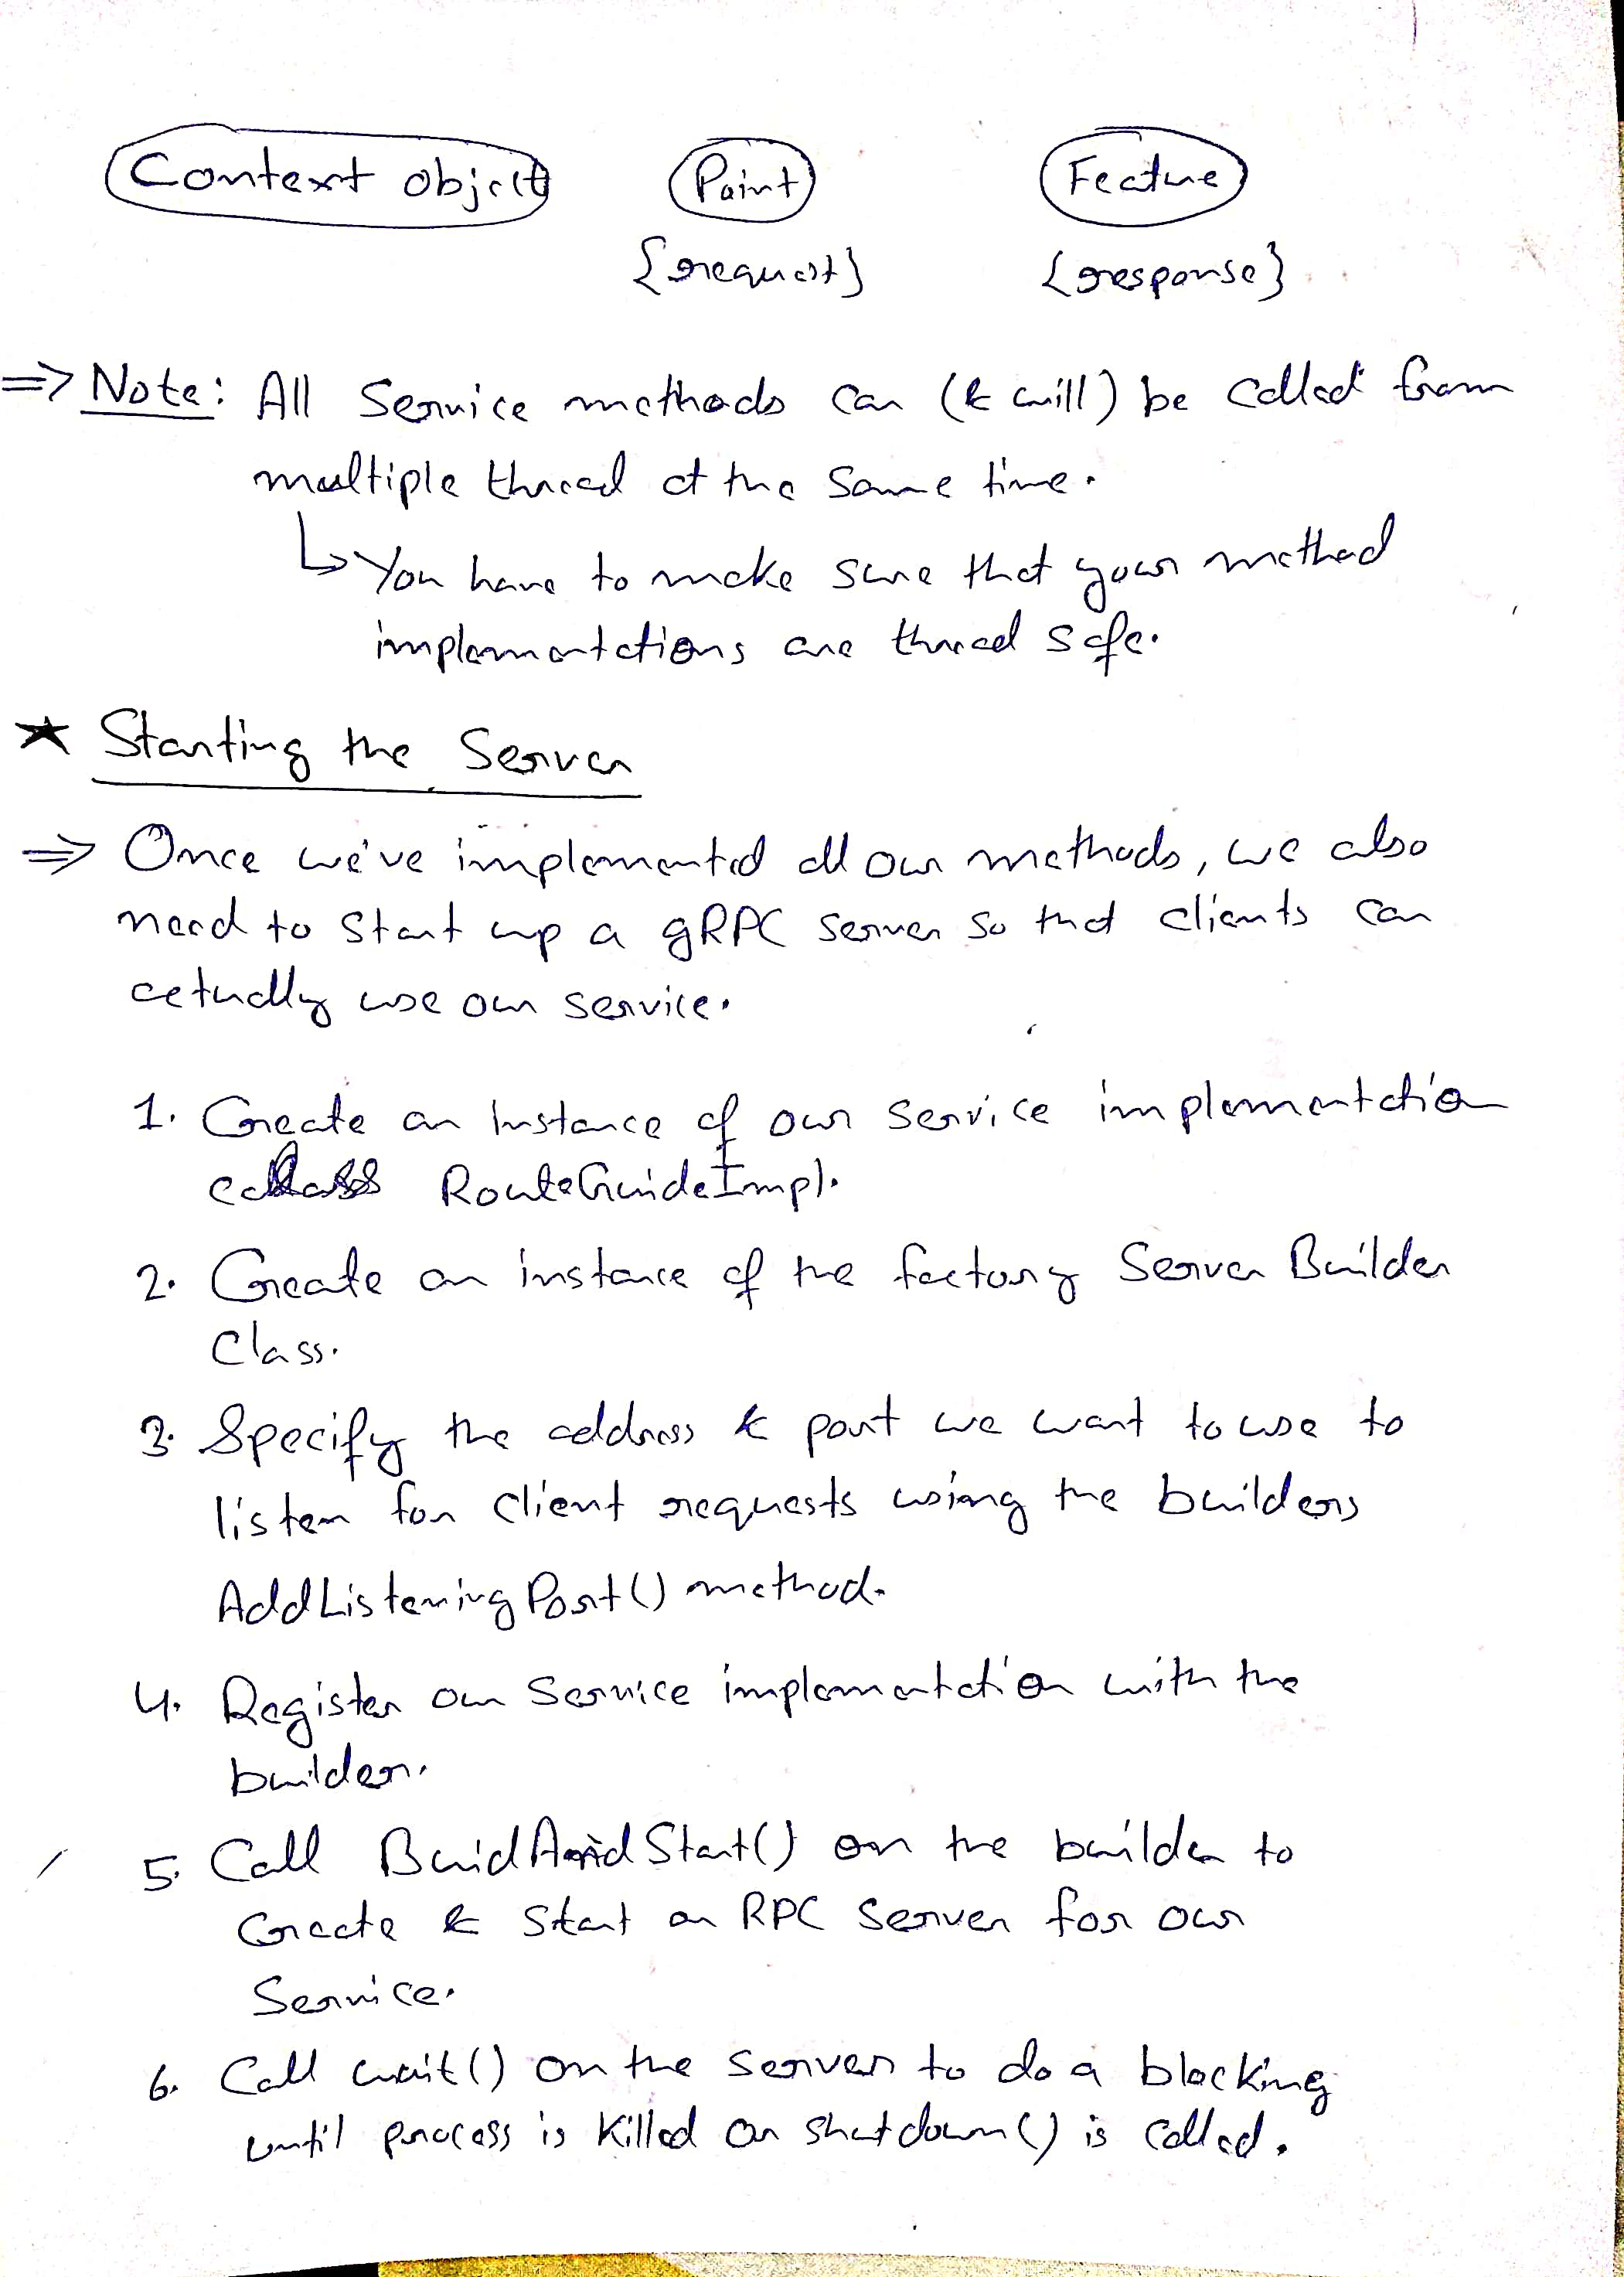 Context object Point Feature
{request} {response}
=> Note: All Service methods can (& will) be called from
multiple thread at the same time.
↳ You have to make sure that your method
implementations are thread safe.
★ Starting the Server
=> Once we've implemented all our methods, we also
need to start up a gRPC server so that clients can
actually use our service.
1. Create an instance of our service implementation
class RouteGuideImpl.
2. Create an instance of the factory Server Builder
Class.
3. Specify the address & port we want to use to
listen for client requests using the builders
AddListeningPort() method.
4. Register our Service implementation with the
builder.
5. Call BuidAndStart() on the builder to
Create & Start an RPC Server for our
Service.
6. Call wait() on the server to do a blocking
until process is killed or shutdown() is called.